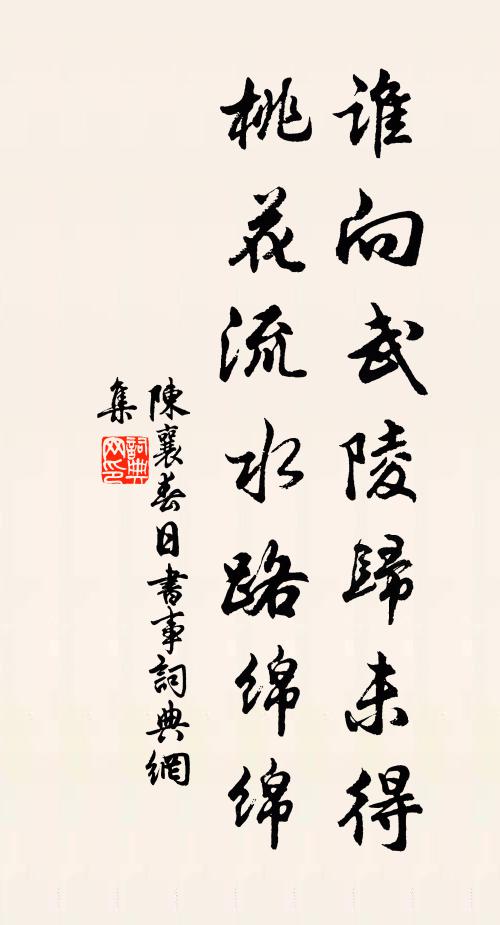 谁向武陵歸未得
桃花流水路绵绵
陳襄春日書事詞典網
集
詞典
网印